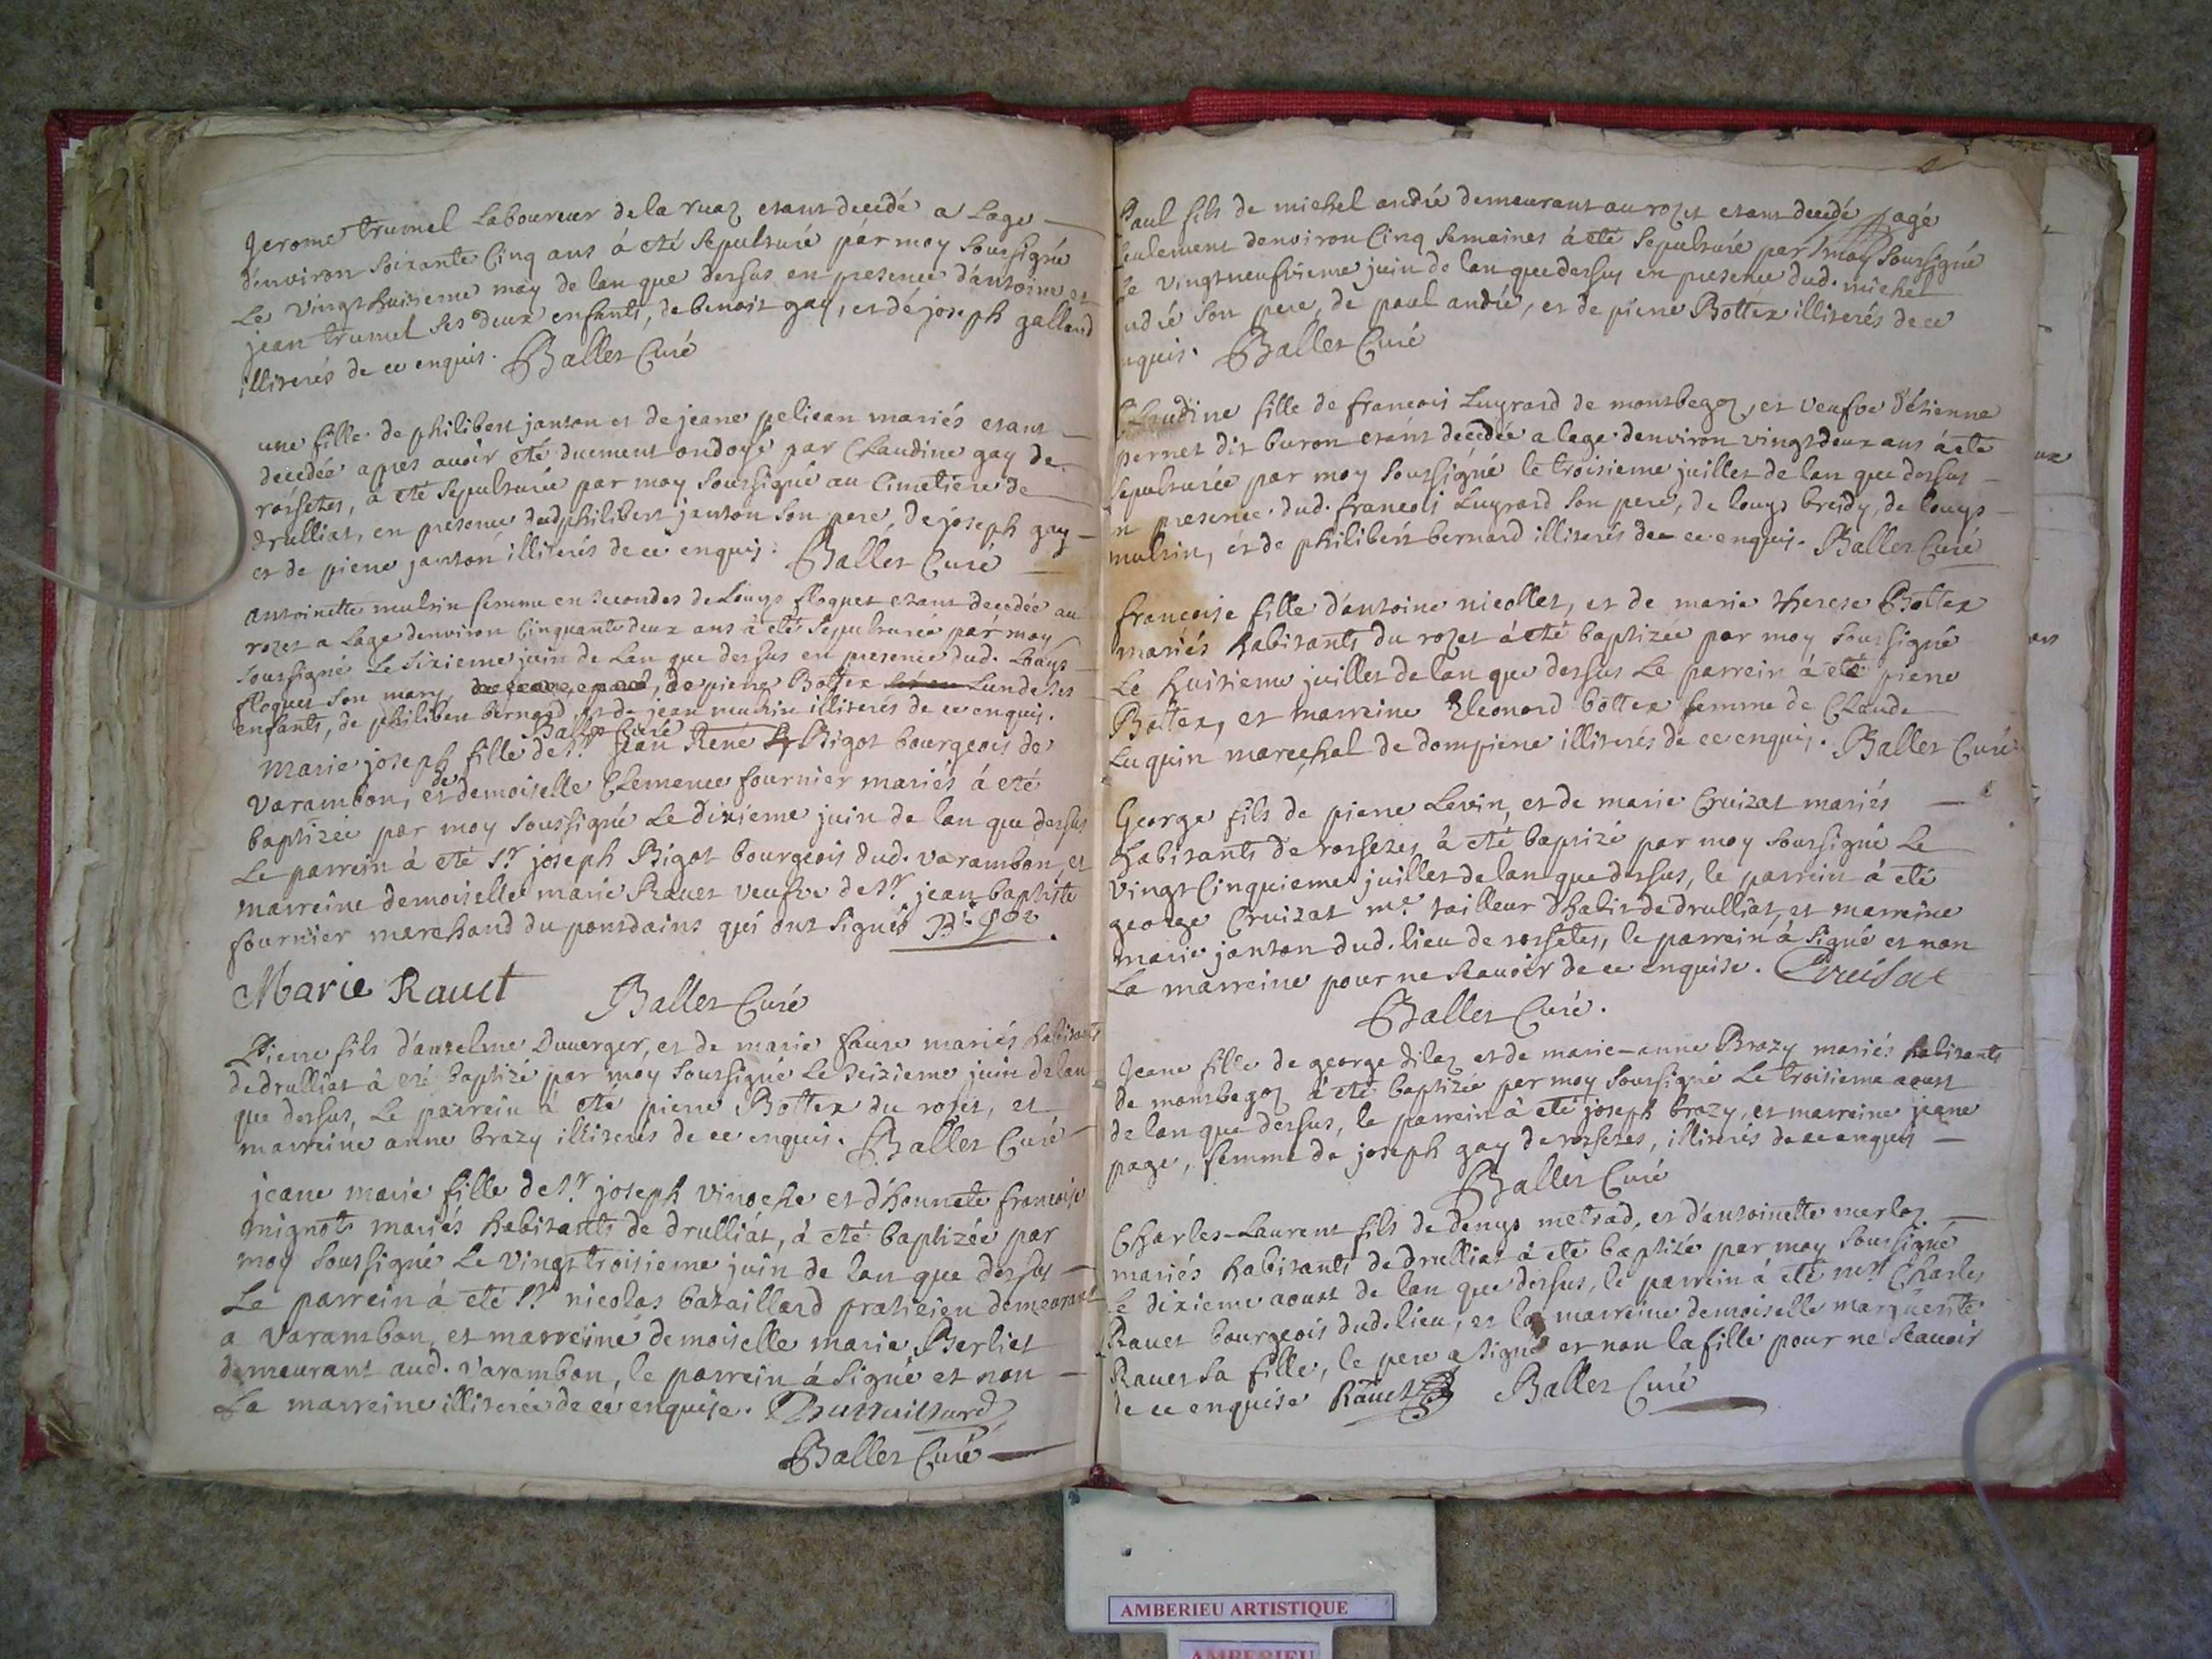 Jerome trumel Laboureur de la ruaz etant decedé a Lage
d'environ soixante Cinq ans á eté sepulturé par moy soussigné
Le vingt huitieme may de lan que dessus en presence d'antoine et
jean trumel ses deux enfants, de benoit gay, et dé joseph galland
illiterés de ce enquis. Ballet Curé
une fille de philibert janton et de jeane pelican mariés etant
decedée apres avoir eté duement ondoyé par Claudine gay de
rossetes, á eté sepulturée par moy soussigné au Cimetiere de
drulliat, en presence dud philibert janton son pere, de joseph gay
et de piere janton illiterés de ce enquis. Ballet Curé
antoinette mulsin femme en secondes de Louys floquet etant decedée au
rozet a Lage denviron Cinquante deux ans á eté sepulturée par moy
soussigné Le sixieme juin de Lan que dessus en presence dud. Louys
floquet son mary, de pierre Bottex Lun de ses
enfants, de philibert bernard, et de jean mulsin illiterés de ce enquis.
Ballet Curé
Marie joseph fille de Sr jean René Bigot bourgeois de
Varambon, et de demoiselle Clemence fournier mariés á eté
baptizée par moy soussigné Le dixieme juin de lan que dessus
Le parrein á eté Sr joseph Bigot bourgeois dud. varambon, et
marreine demoiselle marie Rauet veufve de Sr jean baptiste
fournier marchand du pontdains qui ont signés Bigot
Marie Rauet Ballet Curé
Piere fils d'antelme Duuerger, et de marie faure mariés habitants
de drulliat á eté baptizé par moy soussigné Le seizieme juin de lan
que dessus, Le parrein á eté piere Bottex du rozet, et
marreine anne brazy illiterés de ce enquis. Ballet Curé
jeane marie fille de Sr joseph vinoche et d'honnete francoise
mignot mariés habitants de drulliat, á eté baptizée par
moy soussigné Le vingt troisieme juin de lan que dessus
Le parrein á eté Sr nicolas bataillard praticien demeurant
a varambon, et marreine demoiselle marie Berliet
demeurant aud. varambon, le parrein á signé et non
La marreine illiterée de ce enquise. Battaillard
Ballet Curé
Paul fils de michel andré demeurant au rozet etant decedé agé
seulement denviron Cinq semaines á eté sepulturé par moy soussigné
le vingt neufvieme juin de lan que dessus en presence dud. michel
andré son pere, de paul andré, et de piere Bottex illiterés de ce
enquis. Ballet Curé
Claudine fille de francois Lugrard de montbegoz, et veufve d'étienne
pernet dit buron etant decedée a lage denviron vingt deux ans á eté
sepulturée par moy soussigné le troisieme juillet de lan que dessus
en presence dud. francois Lugrard son pere, de louys breidy, de louys
mulsin, et de philibert bernard illiterés de ce enquis. Ballet Curé
francoise fille d'antoine nicollet, et de marie therese Bottex
mariés habitants du rozet á eté baptizée par moy soussigné
Le huitieme juillet de lan que dessus Le parrein á eté piere
Bottex, et marreine Eleonord bottex femme de Claude
Luquin marechal de dompiere illiterés de ce enquis. Ballet Curé
George fils de piere Levin, et de marie Cruizat mariés
habitants de rossetes á eté baptizé par moy soussigné Le
vingt Cinquieme juillet de lan que dessus, le parrein á eté
george Cruizat me tailleur d'habit de drulliat, et marreine
marie janton dud. lieu de rossetes, le parrein á signé et non
La marreine pour ne scauoir de ce enquise. Cruisat
Ballet Curé.
Jeane fille de george dilaz et de marie-anne Brazy mariés habitants
de montbegoz á eté baptizée par moy soussigné Le troisieme aoust
de lan que dessus, le parrein á eté joseph brazy, et marreine jeane
page, femme de joseph gay de rossetes, illiterés de ce enquis
Ballet Curé
Charles-Laurent fils de denys metrad, et d'antoinette merloz
mariés habitants de drulliat á eté baptizé par moy soussigné
le dixieme aoust de lan que dessus, le parrein á eté Charles
Rauet bourgeois dud. lieu, et la marreine demoiselle marguerite
Rauet sa fille, le pere a signé et non la fille pour ne scauoir
de ce enquise Rauet Ballet Curé
AMBERIEU ARTISTIQUE
AMBERIEU